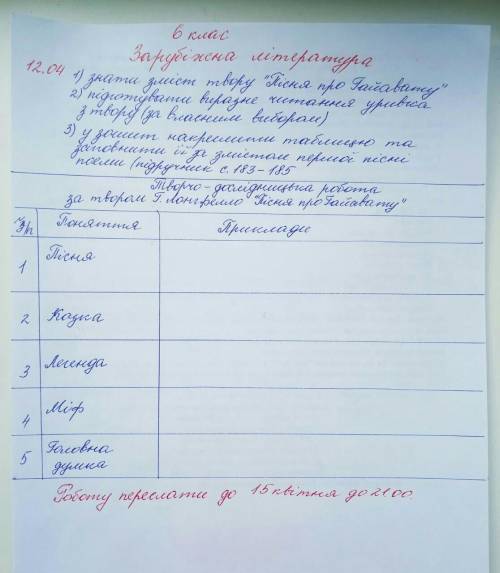 6 клас
Зарубіжна література
12.04 1) знати зміст твору "Пісня про Гайавату"
2) підготувати виразне читання уривка
з твору (за власним вибором)
3) у зошит накреслити таблицю та
заповнити її за змістом першої пісні
поеми (підручник с. 183-185
Творчо-дослідницька робота
за твором Г. Лонгфелло "Пісня про Гайавату"
№ з/п Поняття Приклади
1 Пісня
2 Казка
3 Легенда
4 Міф
5 Головна
думка
Роботу переслати до 15 квітня до 21.00.